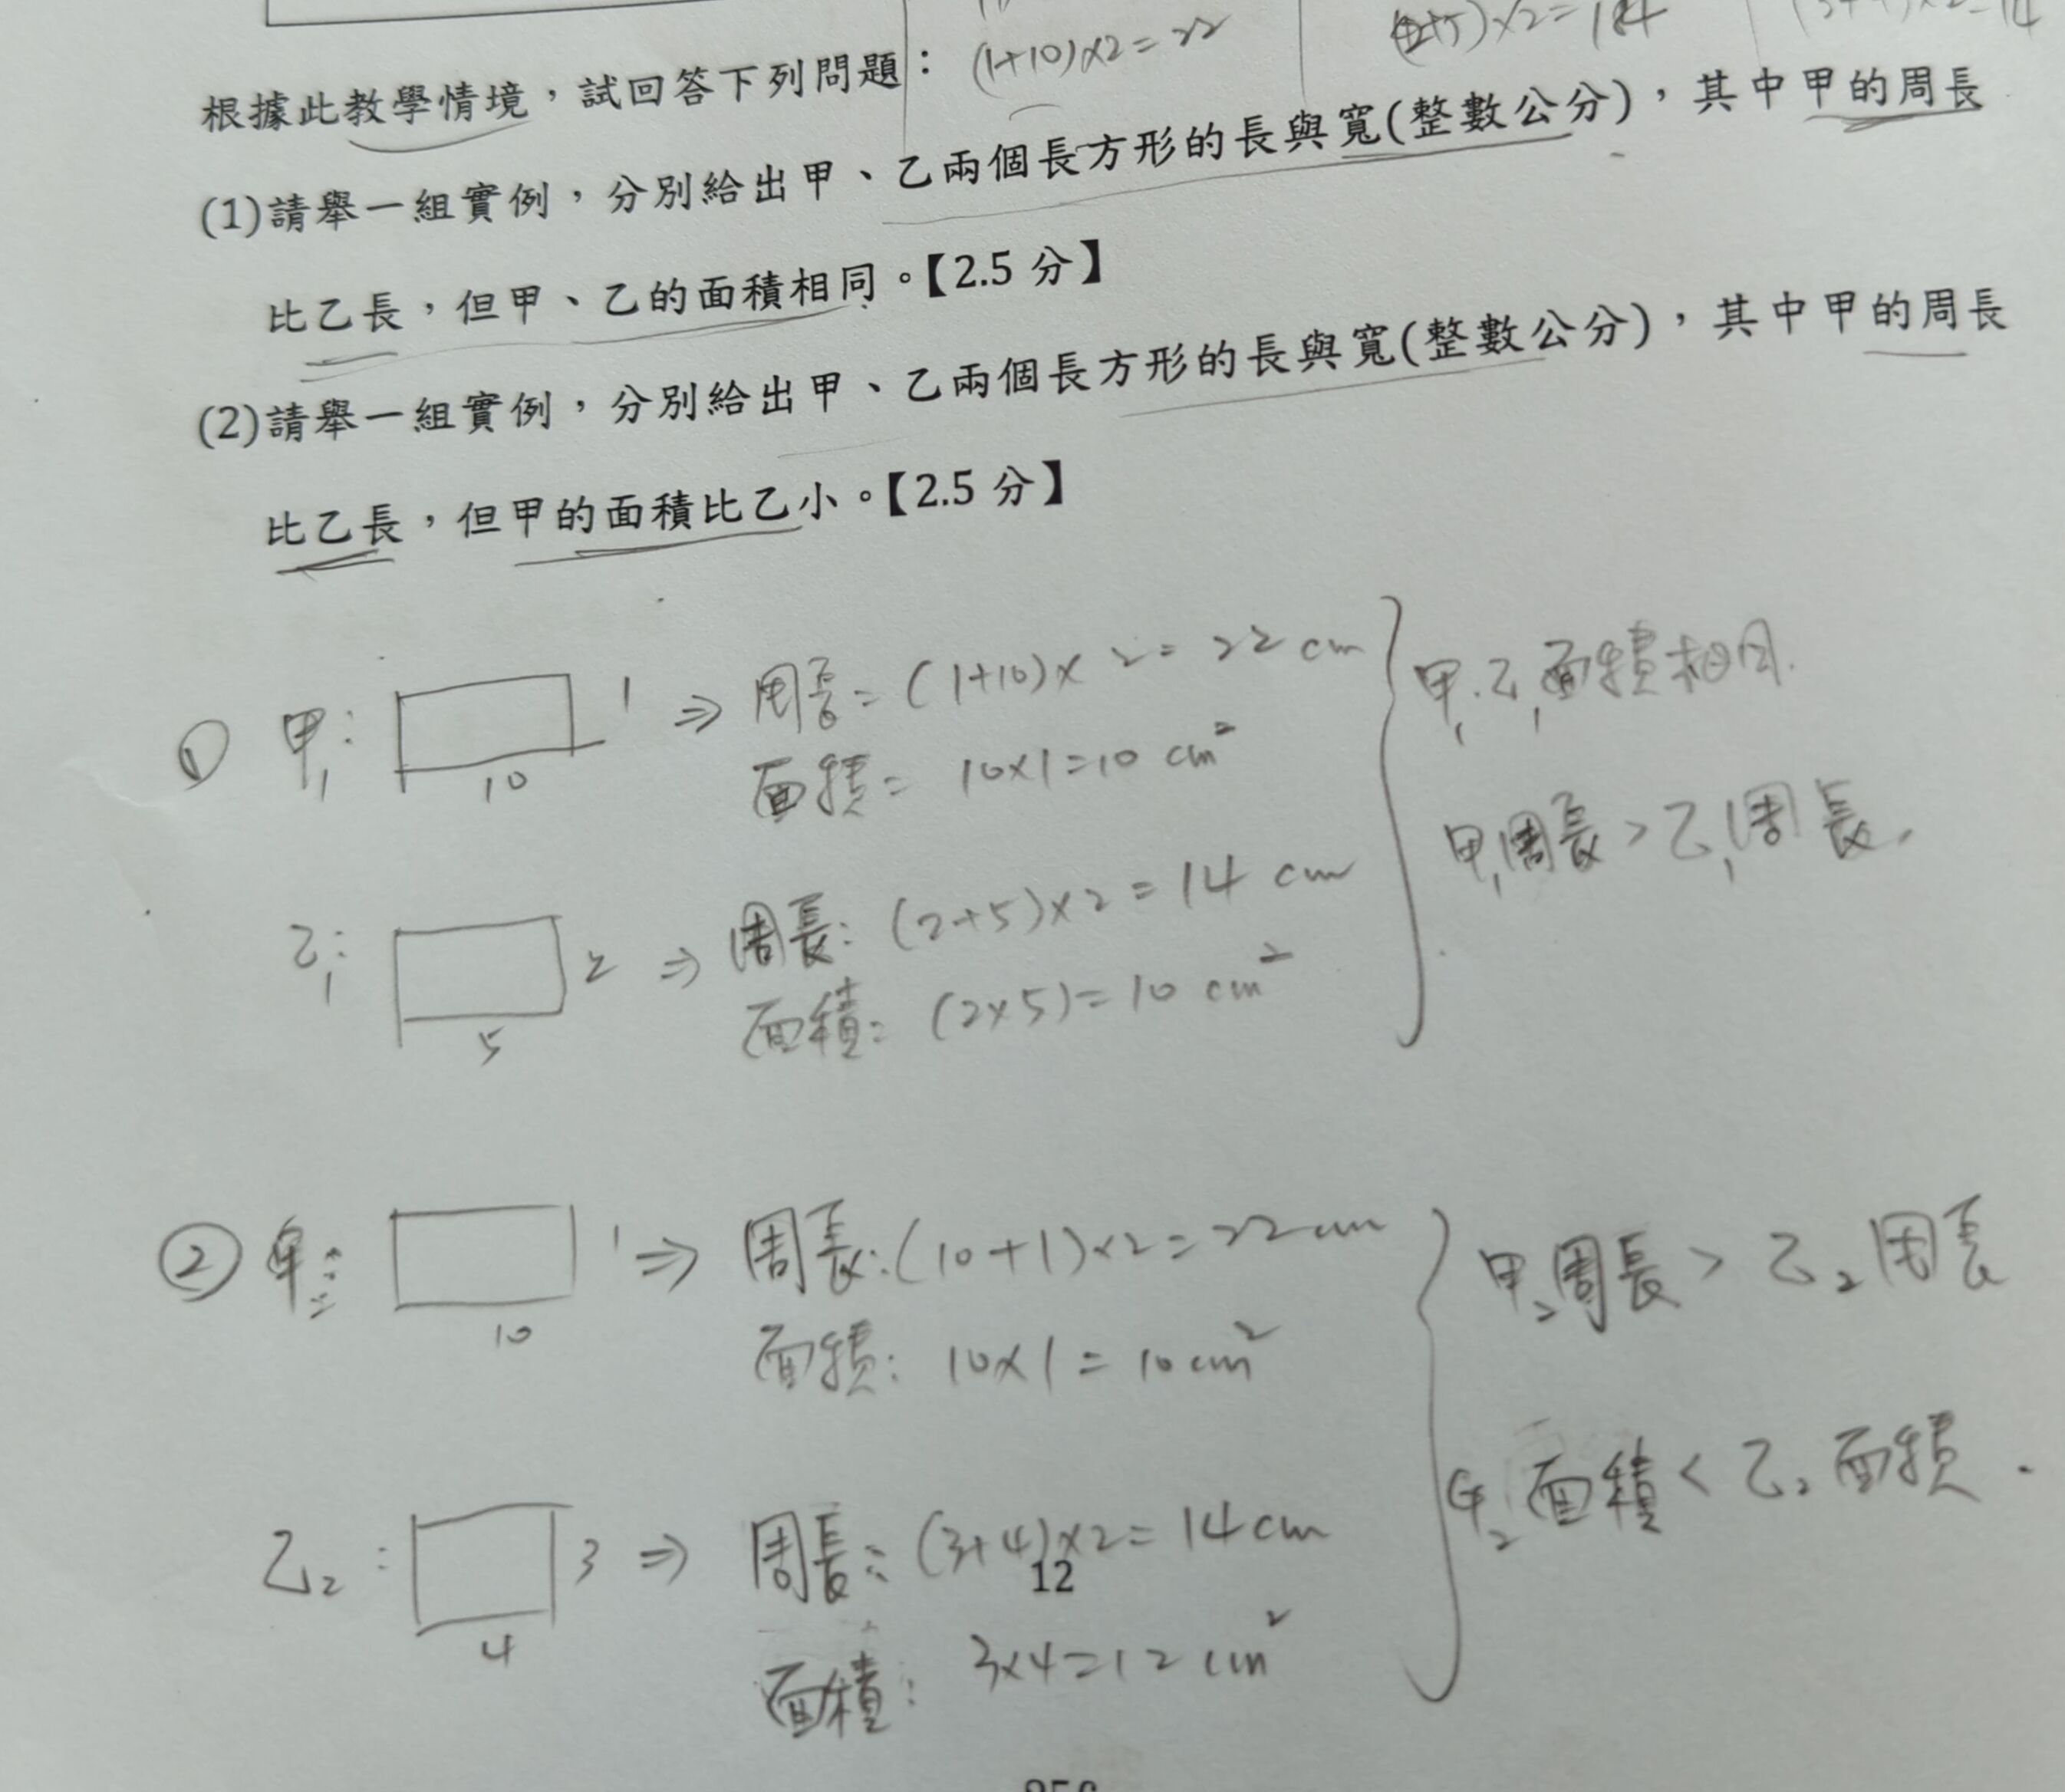 (1+10)×2=22
根據此教學情境，試回答下列問題：
(1)請舉一組實例，分別給出甲、乙兩個長方形的長與寬(整數公分)，其中甲的周長
比乙長，但甲、乙的面積相同。【2.5 分】
(2)請舉一組實例，分別給出甲、乙兩個長方形的長與寬(整數公分)，其中甲的周長
比乙長，但甲的面積比乙小。【2.5 分】
① 甲₁: 10 1 ⇒ 周長=(1+10)×2=22 cm
面積= 10×1=10 cm²
甲₁.乙₁面積相同.
甲₁周長>乙₁周長.
乙₁: 5 2 ⇒ 周長:(2+5)×2=14 cm
面積:(2×5)=10 cm²
② 10 1 ⇒ 周長:(10+1)×2=22cm
面積: 10×1=10cm²
甲₂周長 > 乙₂周長
甲₂面積<乙₂面積.
乙₂: 4 3 ⇒ 周長:(3+4)×2=14cm
12
面積: 3×4=12cm²